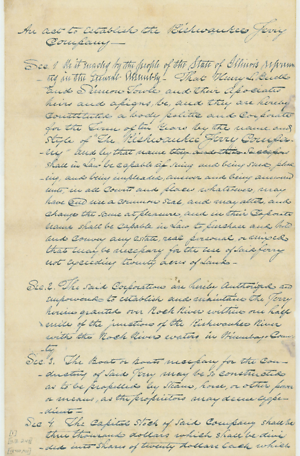 An act to establish the Kishwaukee Ferry
Company
Sec. 1 Be it enacted by the people of the State of Illinois represen
ted in the General Assembly That Henry L.
and Simeon and their associates
heirs and assigns be, and they are hereby
constituted a body politic and corporate
for the term of ten years by the name and
style of "The Kishwaukee Ferry Compa-
ny" and by that name they and their
shall in law be capable of suing and being sued, plea
ding, and being impleaded, answer and being answered
unto, in all Courts and places whatsoever, may
have and use a common seal, and may alter and
change the same at pleasure, and in their corporate
name shall be capable in law to purchase and hold
and convey any estate, real personal or mixed
that may be necessary for the use of said ferry
not exceeding twenty acres of land.
Sec. 2. The said Corporation are hereby authorized and
empowered to establish and maintain the ferry
herein granted over Rock River within one half
mile of the junction of the Kishwaukee River
with the Rock River waters in Winnebago Coun
ty.
Sec. 3. The Boat or boats necessary for the Con-
ducting of said Ferry may be so constructed
as to be propelled by steam, horse, or other pow
er means, as the proprietors may deem expe-
dient.
Sec 4 The Capital Stock of said Company shall be
three thousand dollars which shall be divi
ded into shares of twenty dollars each which